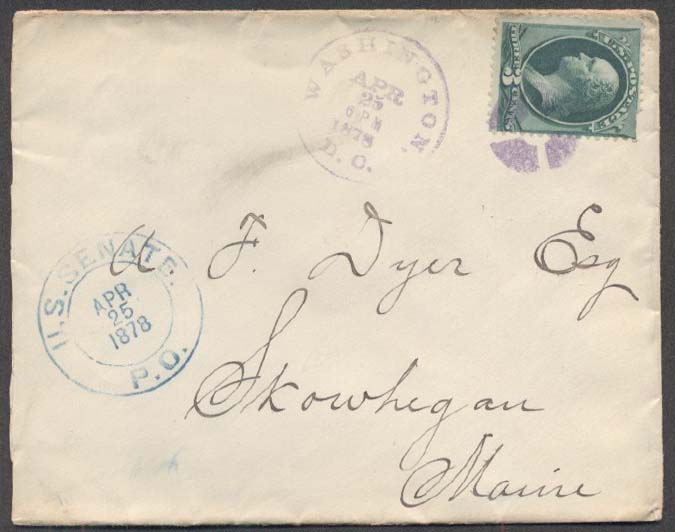 WASHINGTON,
APR
25
6 PM
1878
D. C.
U.S. POSTAGE
U.S. SENATE.
APR
25
1878
P.O.
A F. Dyer Esq
Skowhegan
Maine